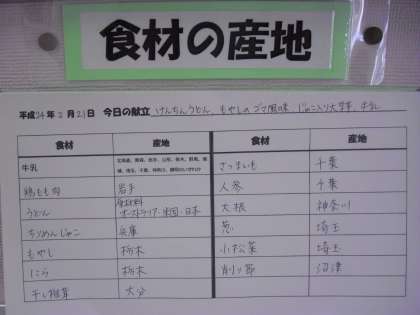 食材の産地
平成24年2月21日 今日の献立 けんちんうどん、もやしのゴマ風味、じゃこ入り大学芋、牛乳
食材 産地 食材 産地
牛乳 さつまいも 千葉
鶏もも肉 岩手 人参 千葉
うどん 原材料 オーストラリア・米国・日本 大根 神奈川
ちりめんじゃこ 兵庫 葱 埼玉
もやし 栃木 小松菜 埼玉
にら 栃木 削り節 沼津
干し椎茸 大分